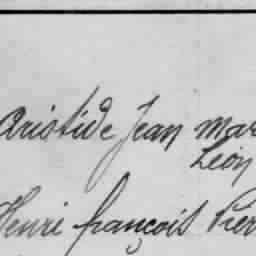 Aristide Jean Mar
Léon
Henri François Pier